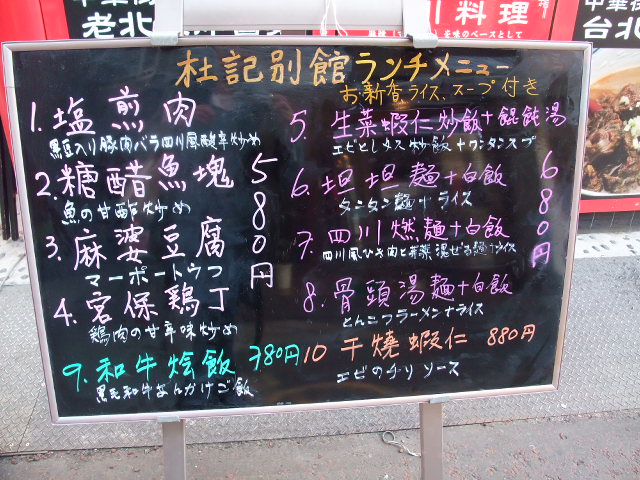 料理
杜記別館ランチメニュー
お新香ライス、スープ付き
1.塩煎肉
黒豆入り豚肉バラ四川風酸辛炒め
2.糖醋魚塊
魚の甘酢炒め
3.麻婆豆腐
マーボートウフ
4.宮保鶏丁
鶏肉の甘辛味炒め
580円
5.生菜蝦仁炒飯+餛飩湯
エビとレタス炒飯+ワンタンスプ
6.坦坦麺+白飯
タンタン麺+ライス
7.四川燃麺+白飯
8.骨頭湯麺+白飯
とんこつラーメン+ライス
680円
9.和牛烩飯 780円
黒毛和牛あんかけご飯
10 干燒蝦仁 880円
エビのチリソース